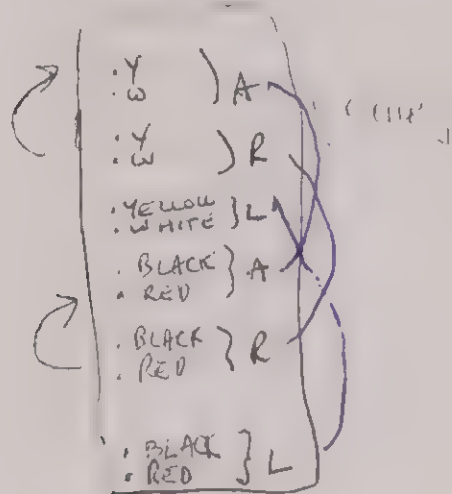 : Y
: W ) A
: Y
: W ) R
: YELLOW
: WHITE } L
. BLACK
. RED } A
. BLACK
. RED } R
: BLACK
: RED } L